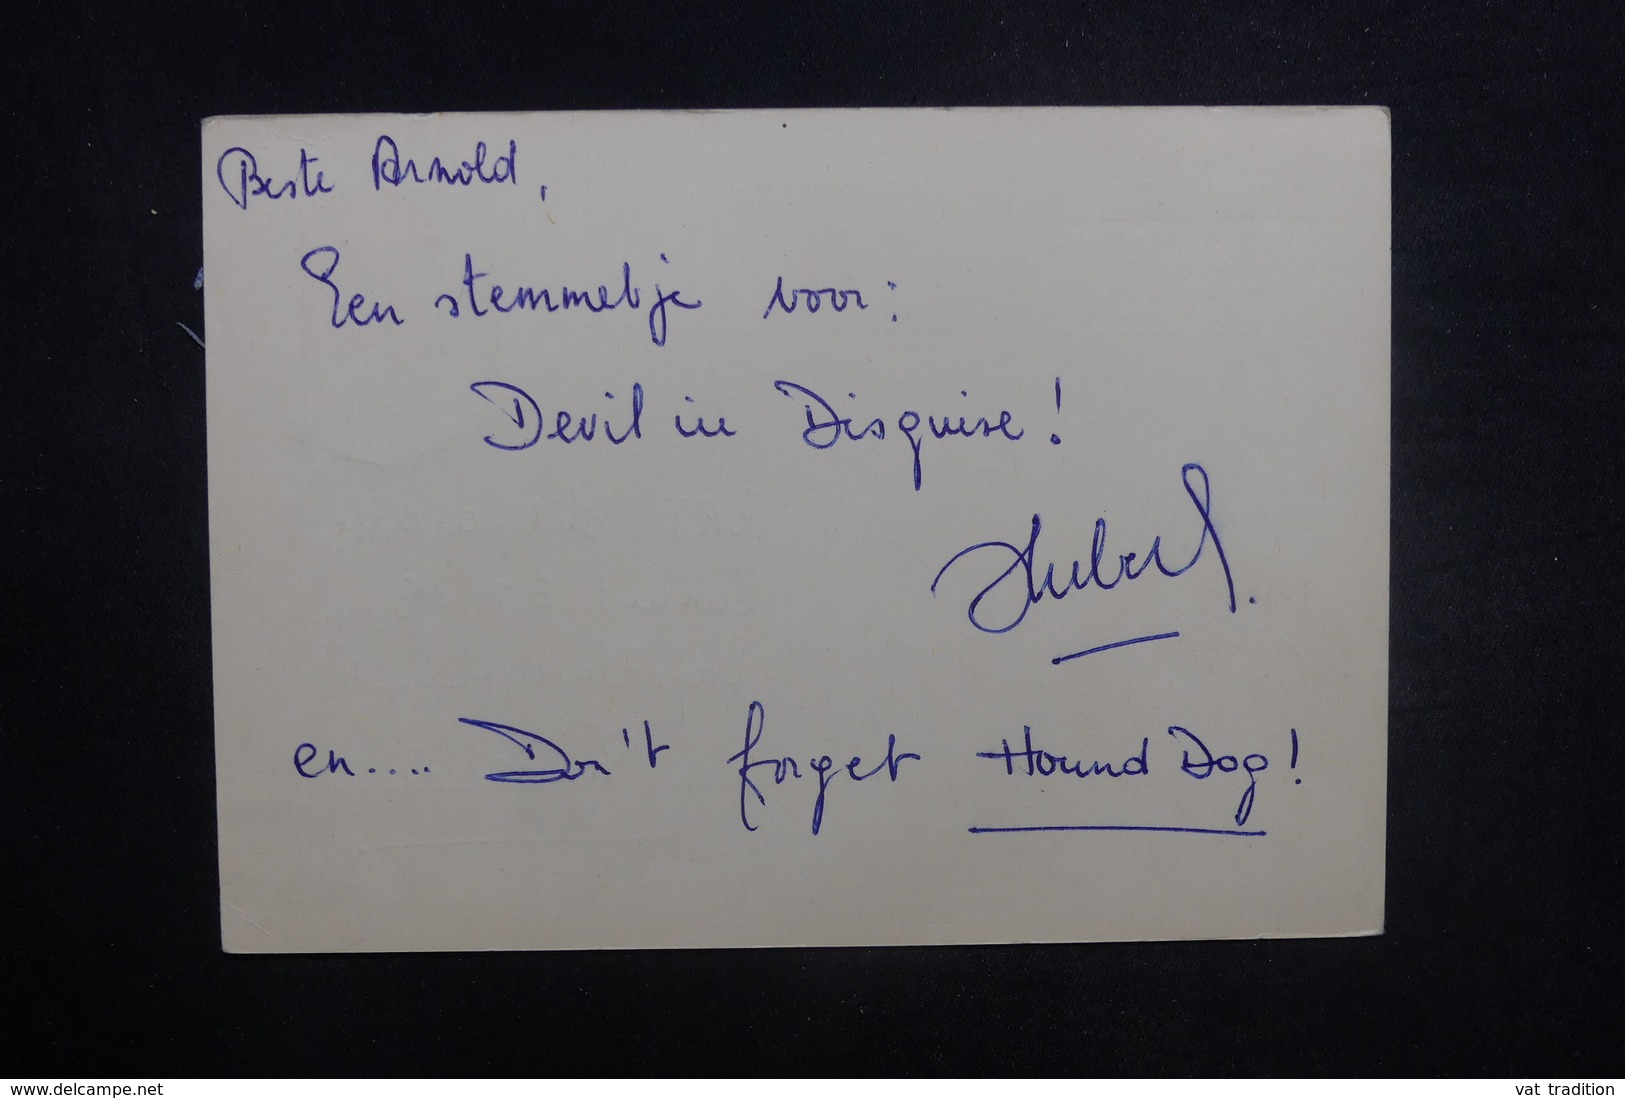 Beste Arnold,
Een stemmetje voor:
Devil in Disguise!
Hubert.
en.... Don't forget Hound Dog!
www.delcampe.net
vat tradition